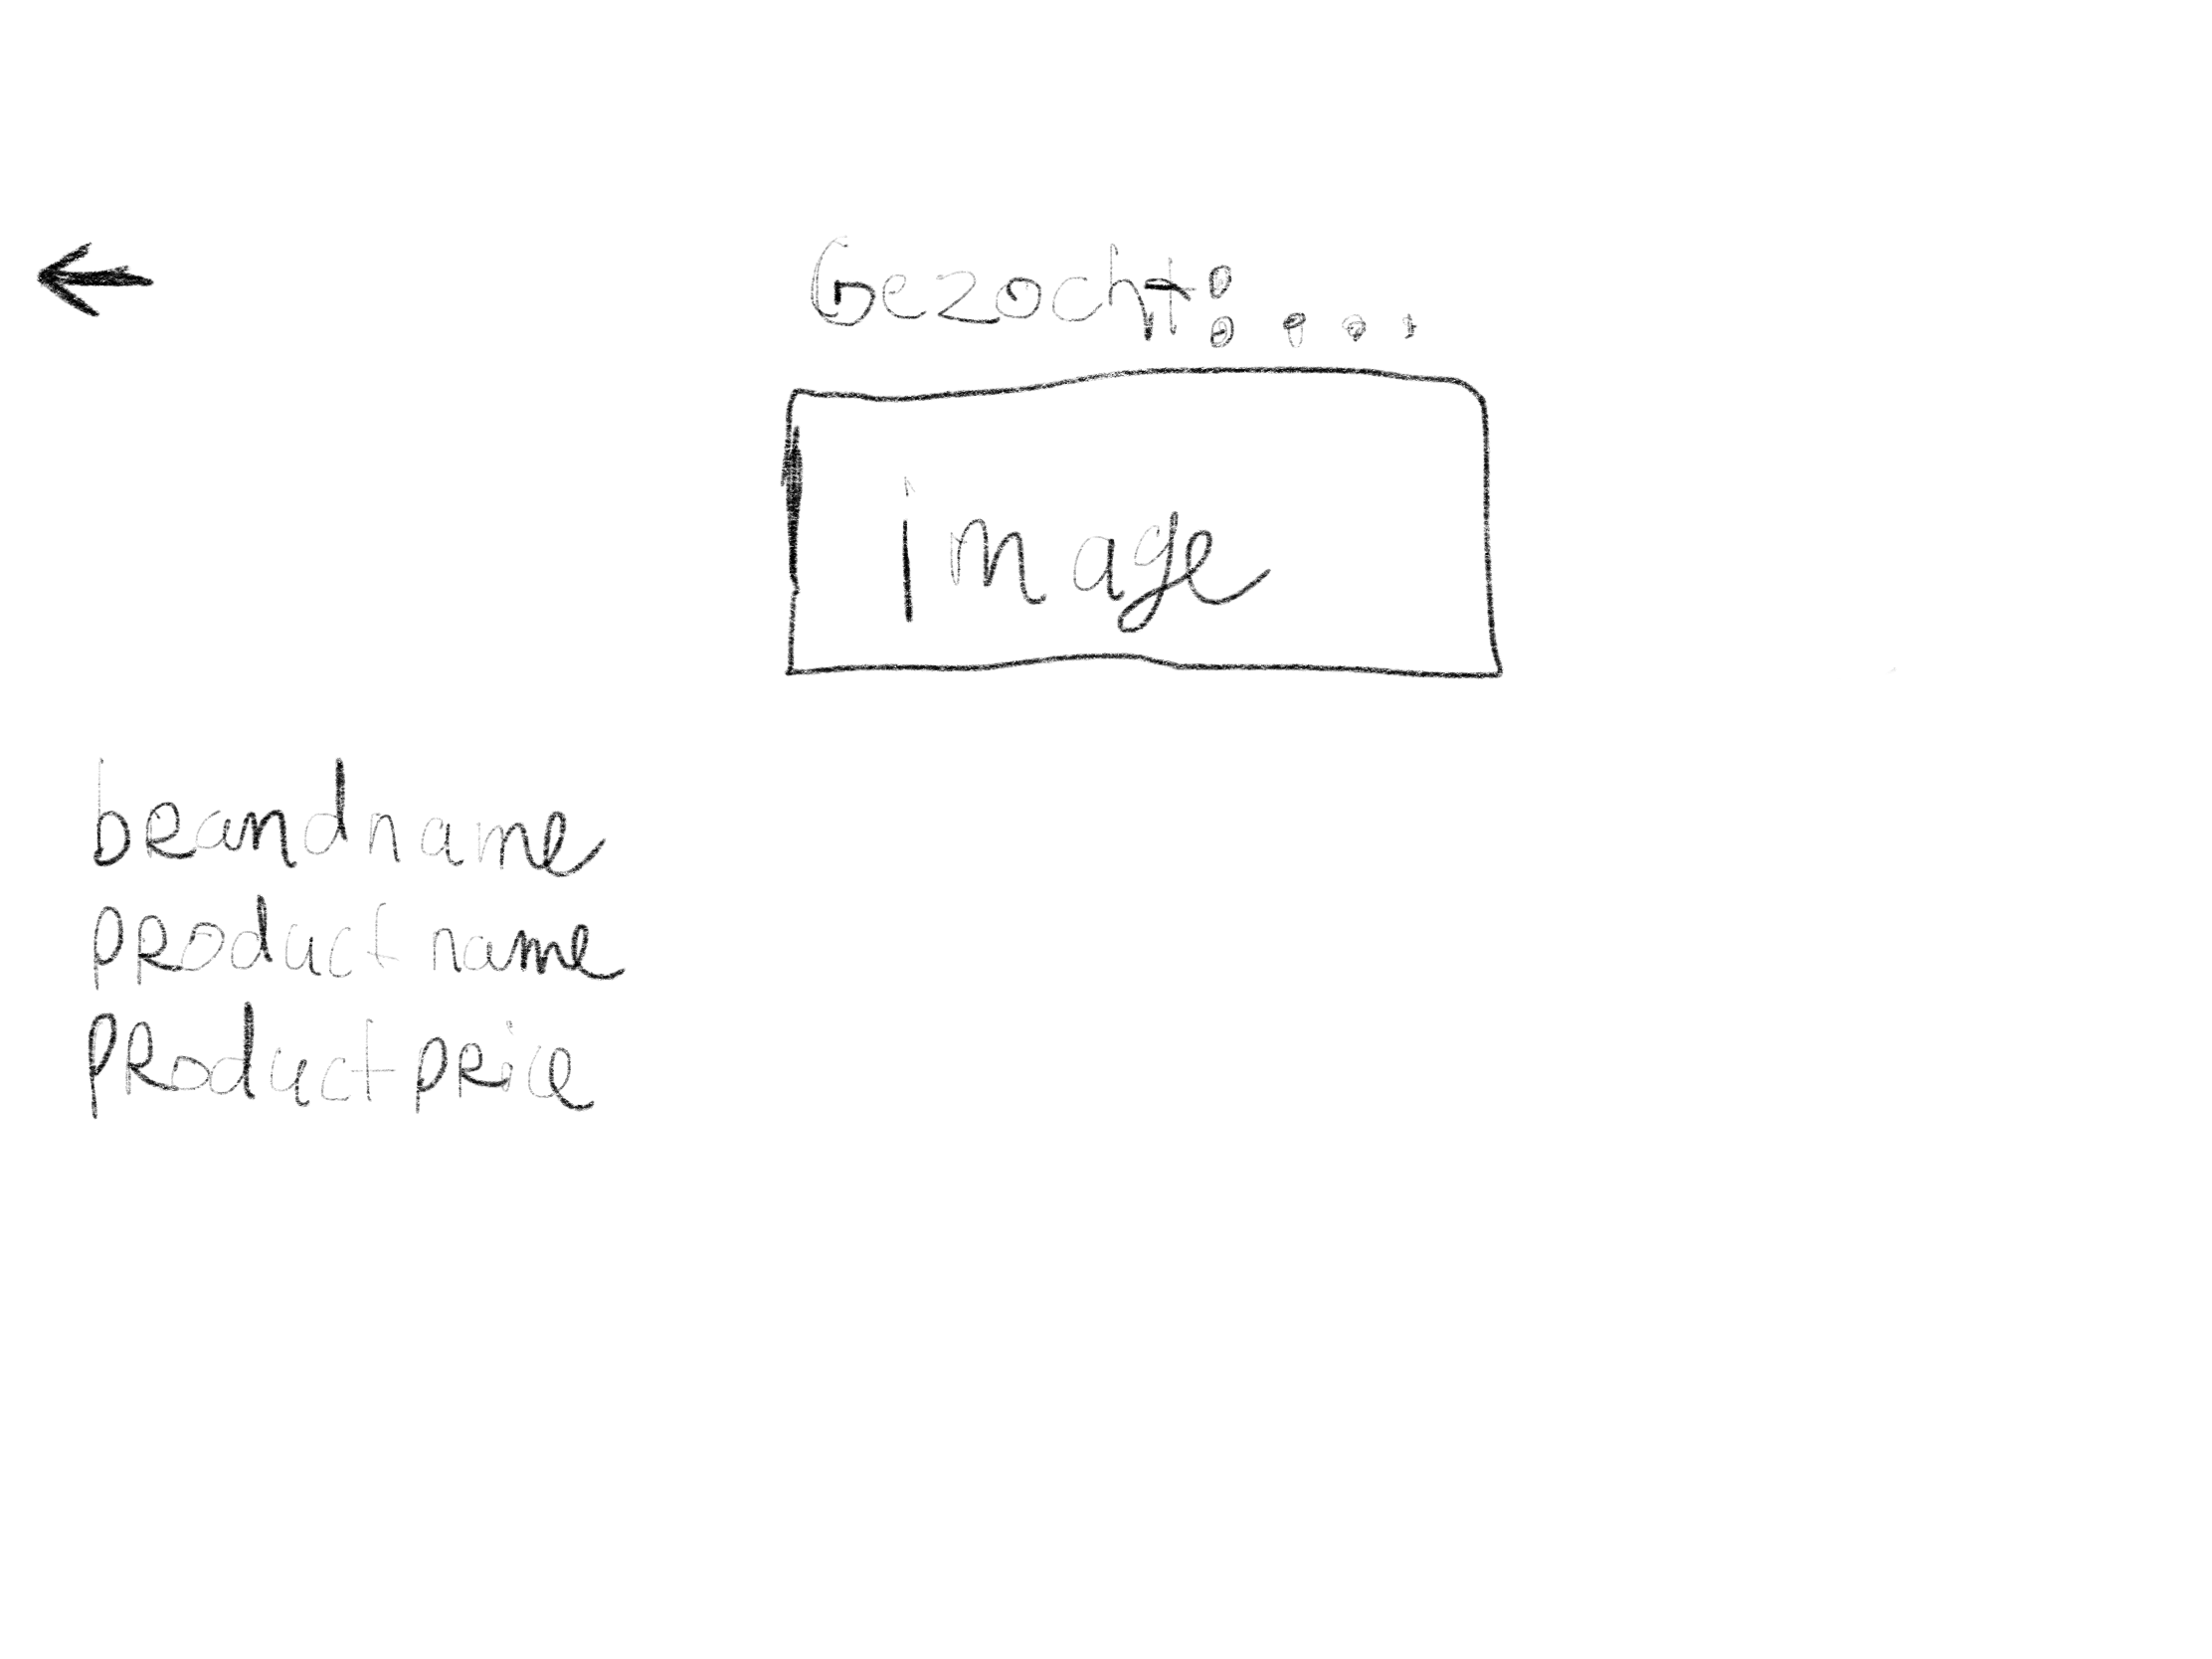 Gezocht: ...
image
brandname
product name
Product price